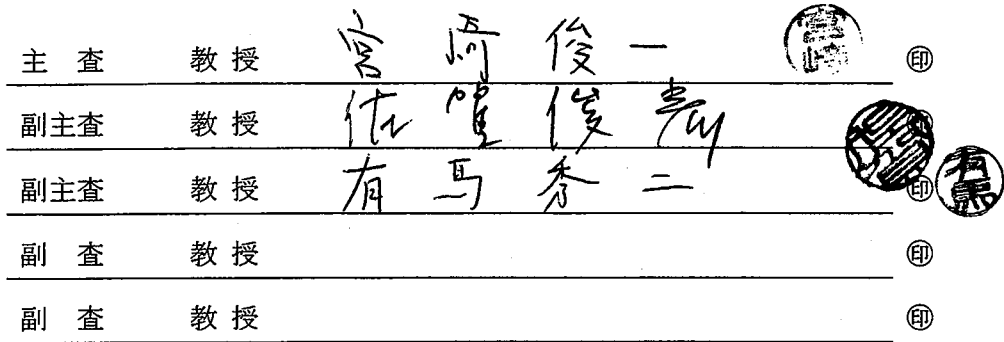 主 査 教 授 宮 崎 俊 一 ㊞
副主査 教 授 佐 賀 俊 ㊞
副主査 教 授 有 馬 秀 二 ㊞ 有馬
副 査 教 授 ㊞
副 査 教 授 ㊞